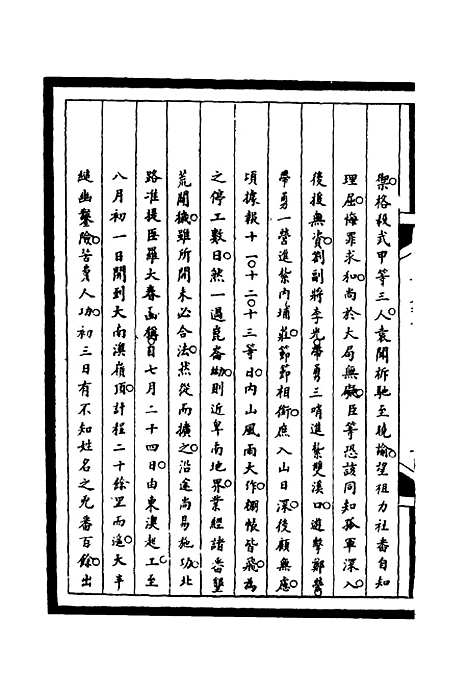 禦格殺武甲等三人袁聞柝馳至曉諭望祖力社番自知
理屈悔罪求和尚於大局無礙臣等恐該同知孤軍深入
後援無資劄副將李光帶勇三哨進紮雙溪口遊擊鄭榮
帶勇一營進紮內埔莊節節相銜庶入山日深後顧無慮
頃據報十一十二十三等日內山風雨大作棚帳皆飛為
之停工數日然一過崑崙坳則近卑南地界業經諸番墾
荒闢穢雖所開未必合法然從而擴之沿途尚易施功北
路准提臣羅大春函稱自七月二十四日由東澳起工至
八月初一日開到大南澳嶺頂計程二十餘里而遙大半
縋幽鑿險苦費人功初三日有不知姓名之兇番百餘出